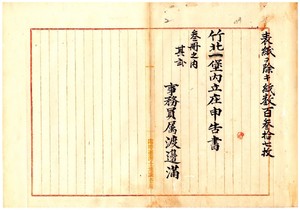 表紙ヲ除キ紙数百参拾七枚
竹北一堡內立庄申告書
参冊之內
其弍
事務員属渡邊滿